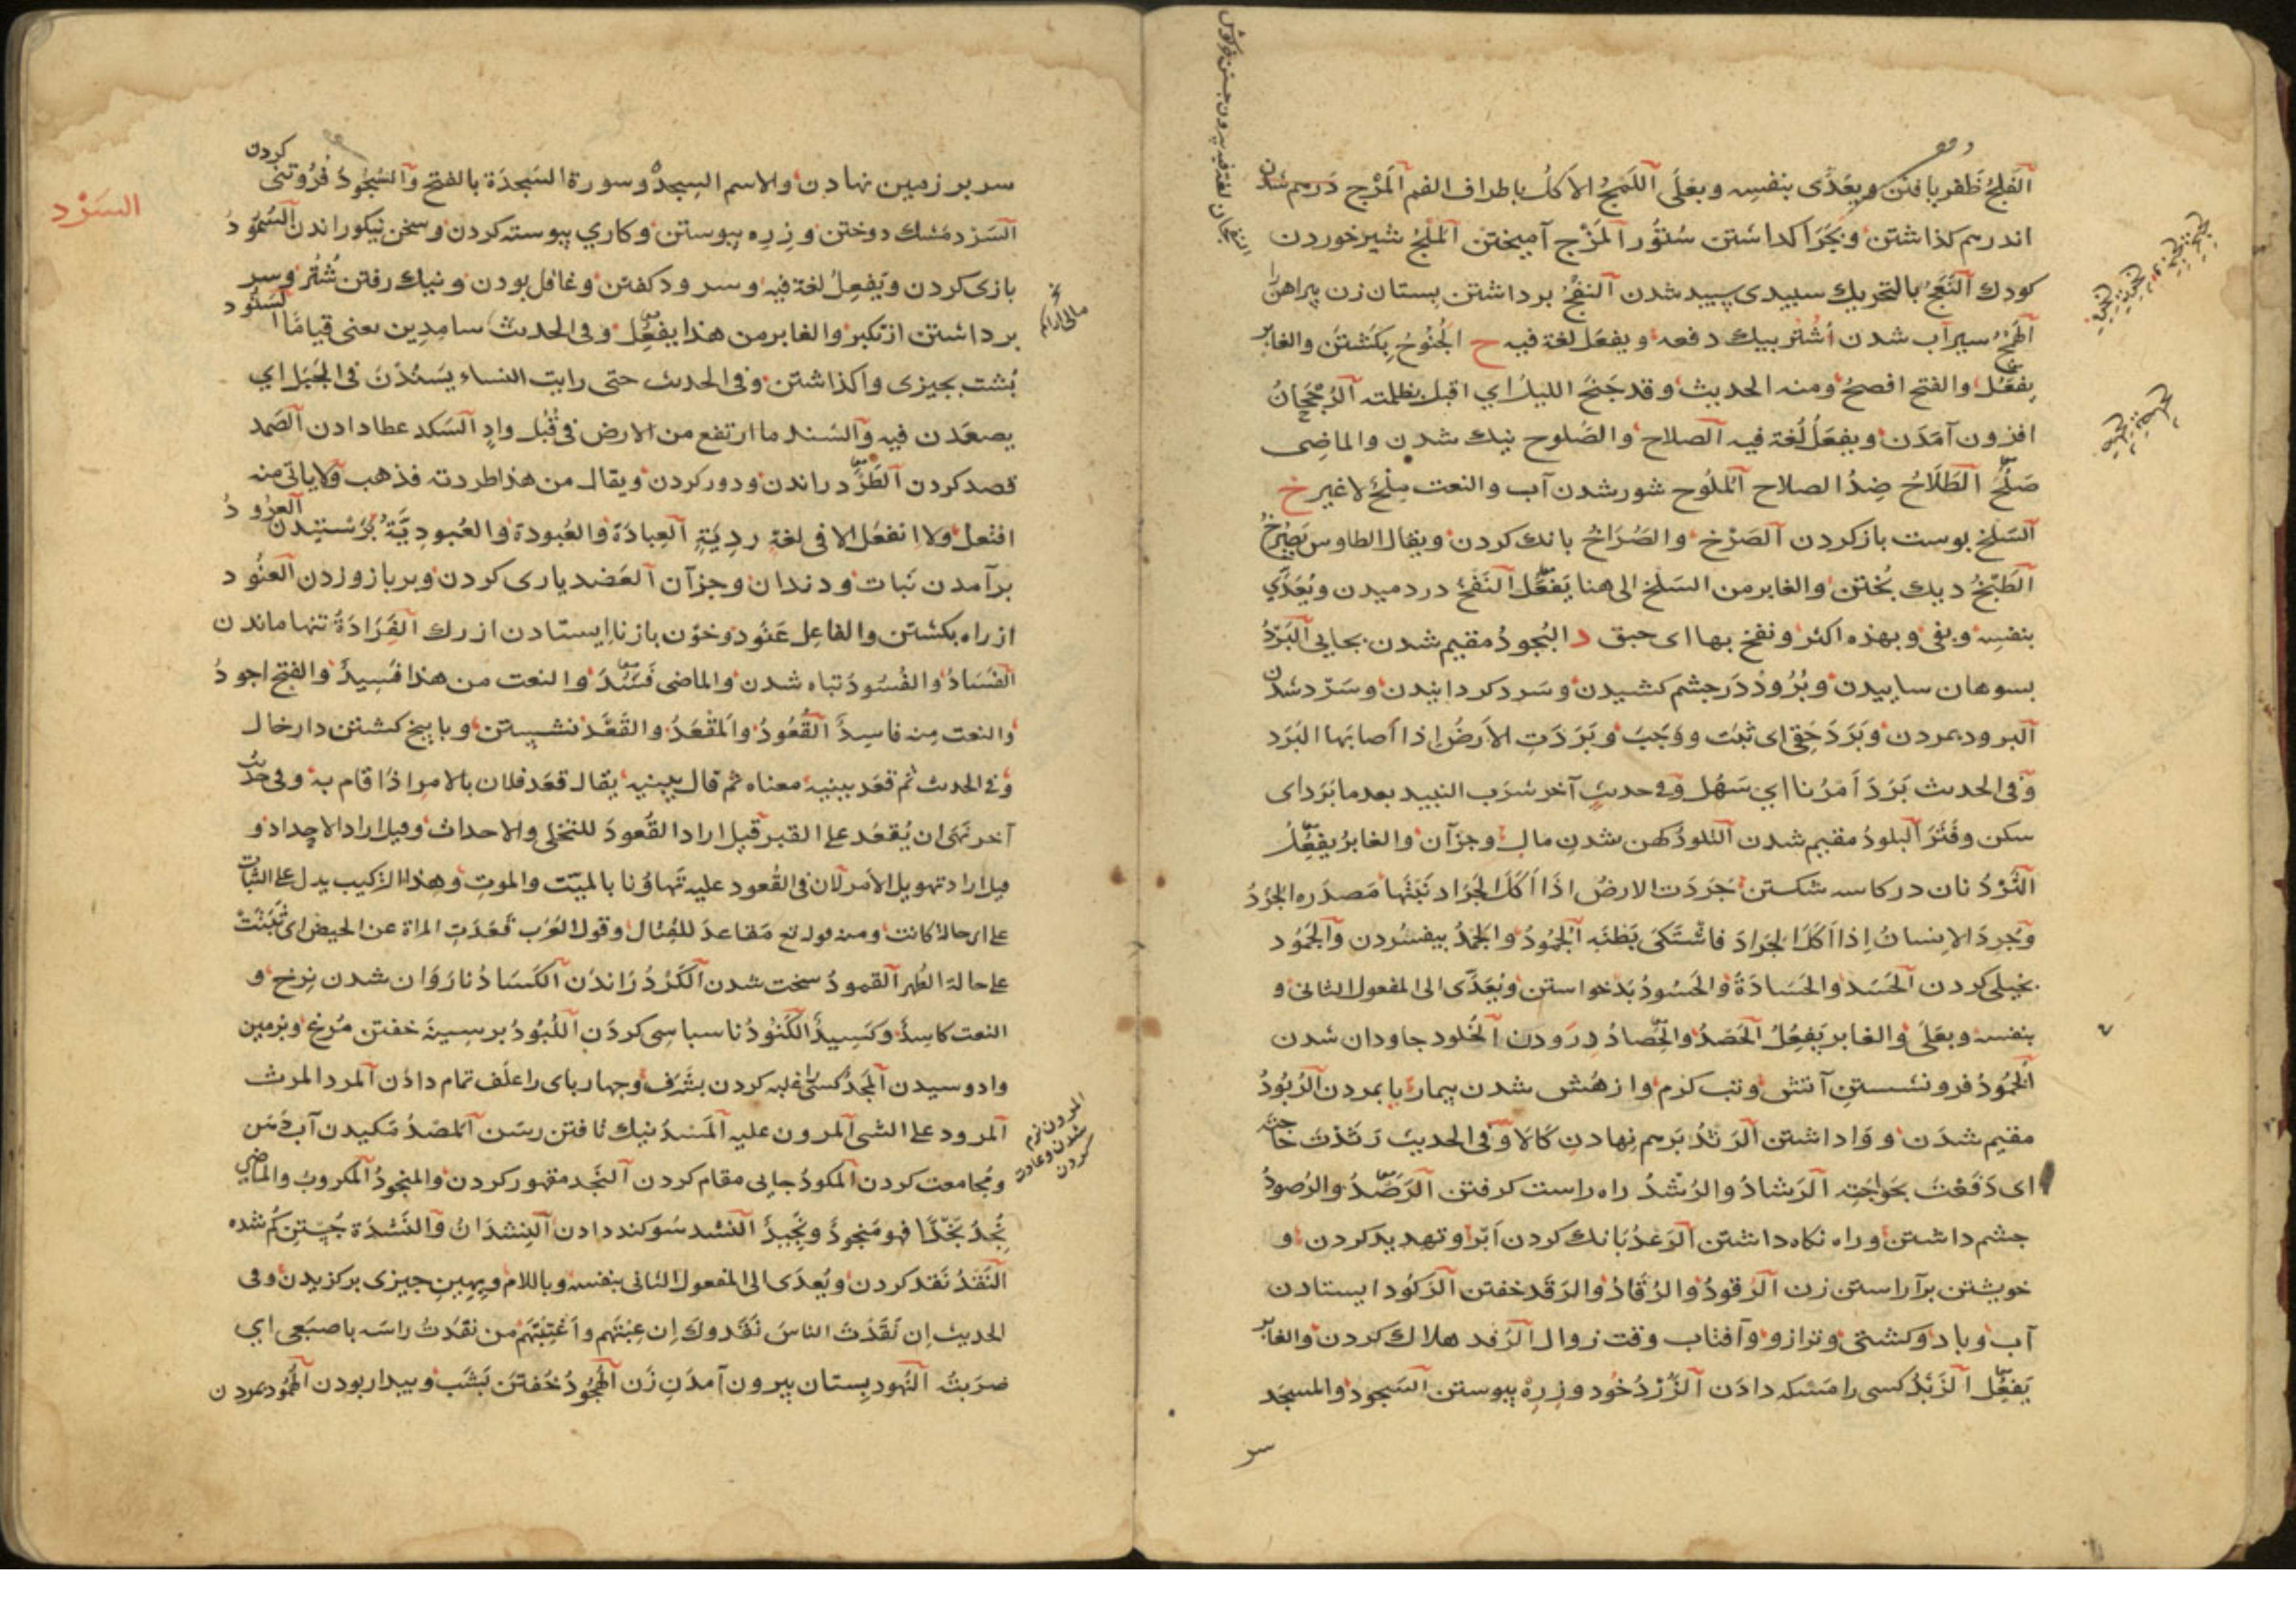 الفلج ظفر يافتن ويعدى بنفسه وبعلى اللمج الاكل باطراف الفم المرج درهم شدن
اندرهم كذاشتن وبچرا كذاشتن ستور المزج آميختن الملج شير خوردن
كودك النعج بالتحريك سپيدى سپيد شدن النفج برداشتن پستان زن پيراهن را
سيرآب شدن اشتر بيك دفعه ويفعل لغة فيه ح الجنوح بكشتن والغابر
يفعل والفتح افصح ومنه الحديث وقد جنح الليل اي اقبل بظلمته الرجحان
افزون آمدن ويفعل لغة فيه الصلاح والصلوح نيك شدن والماضى
صلح الطلاح ضد الصلاح الملوح شور شدن آب والنعت ملح لا غير خ
السلخ پوست باز كردن الصرخ والصراخ بانك كردن ويقال الطاوس يصرخ
الطبخ ديك پختن والغابر من السلخ الى هنا يفعل النفخ در دميدن ويعدى
بنفسه وبفى وبهذه اكثر ونفخ بها اى حبق د البجود مقيم شدن بجايى البرد
بسوهان ساييدن وبرود در چشم كشيدن وسرد كردانيدن وسرد شدن
البرود بمردن وبرد حقى اى ثبت ووجب وبردت الارض اذا اصابها البرد
وفى الحديث برد امرنا اي سهل وفى حديث آخر شرب النبيذ بعد ما برد اى
سكن وفتر البلود مقيم شدن التلود كهن شدن مال وجز آن والغابر يفعل
الثرد نان در كاسه شكستن جردت الارض اذا اكل الجراد نبتها مصدره الجرد
وجرد الانسان اذا اكل الجراد فاشتكى بطنه الجمود والجمد بيفسردن والجمود
بخيلى كردن الحسد والحسادة والحسود بدخواستن ويعدى الى المفعول الثانى و
بنفسه وبعلى والغابر يفعل الحصد والحصاد درودن الخلود جاودان شدن
الخمود فرو نشستن آتش وتب كرم واز هش شدن بيمار يا بمردن الربود
مقيم شدن وواداشتن الرثد برهم نهادن كالا وفى الحديث رثدت حاجته
اى دفعت بحوايجه الرشاد والرشد راه راست كرفتن الرصد والرصود
چشم داشتن وراه نكاه داشتن الرعد بانك كردن ابر وتهديد كردن و
خويشتن برآراستن زن الرقود والرقاد والرقد خفتن الركود ايستادن
آب وباد وكشتى وترازو وآفتاب وقت زوال الرمد هلاك كردن والغابر
يفعل الزبد كسى را مسكه دادن الزرد خود وزره پيوستن السجود والمسجد
سر
سر بر زمين نهادن والاسم السجدة وسورة السجدة بالفتح والسجود فروتنى كردن
السرد مشك دوختن وزره پيوستن وكاري پيوسته كردن وسخن نيكو راندن السمود
بازى كردن ويفعل لغة فيه وسرود كفتن وغافل بودن ونيك رفتن شتر وسر
برداشتن از تكبر والغابر من هذا يفعل وفى الحديث سامدين يعنى قياما السنود
پشت بچيزى واكذاشتن وفى الحديث حتى رايت النساء يسندن فى الجبل اي
يصعدن فيه والسند ما ارتفع من الارض فى قبل واد السكد عطا دادن الصمد
قصد كردن الطرد راندن ودور كردن ويقال من هذا طردته فذهب ولا ياتى منه
افتعل ولا انفعل الا فى لغة ردية العبادة والعبودة والعبودية پرستيدن العرود
برآمدن نبات ودندان وجز آن العضد يارى كردن وبر بازو زدن العنود
از راه بكشتن والفاعل عنود وخون باز ناايستادن از رك الفرادة تنها ماندن
الفساد والفسود تباه شدن والماضى فسد والنعت من هذا فسيد والفتح اجود
والنعت منه فاسد القعود والمقعد والقعد نشستن وبا بيخ كشتن دار خال
وفى الحديث ثم قعد ببينيه معناه ثم قال ببينيه يقال قعد فلان بالامر اذا قام به وفى حديث
آخر نهى ان يقعد على القبر قيل اراد القعود للتخلى والاحداث وقيل اراد الاحداد و
قيل اراد تهويل الامر لان فى القعود عليه تهاونا بالميت والموت وهذا التركيب يدل على الثبات
على اى حالة كانت ومنه قوله تع مقاعد للقتال وقول العرب قعدت المراة عن الحيض اى ثبتت
على حالة الطهر القمود سخت شدن الكرد راندن الكساد ناروان شدن نرخ و
النعت كاسد وكسيد الكنود ناسپاسى كردن اللبود بر سينه خفتن مرغ وبزمين
وادوسيدن المجد كسى را غلبه كردن بشرف وچهارپاى را علف تمام دادن المرد المرث
المرود على الشى المرون عليه المسد نيك تافتن رسن المصد مكيدن آب دهن
ومجامعت كردن المكود جايى مقام كردن النجد مقهور كردن والمنجود المكروب والماضى
نجد نجدا فهو منجود ونجيد النشد سوكند دادن النشدان والنشدة جستن كم شده
النقد نقد كردن ويعدى الى المفعول الثانى بنفسه وباللام وبهين چيزى بركزيدن وفى
الحديث ان نقدت الناس نقدوك ان عبتهم واغتبتهم من نقدت راسه باصبعى اي
ضربته النهود پستان بيرون آمدن زن الهجود خفتن بشب وبيدار بودن الهمود بمردن
السرد
المرون نرم
شدن وعادت
كردن